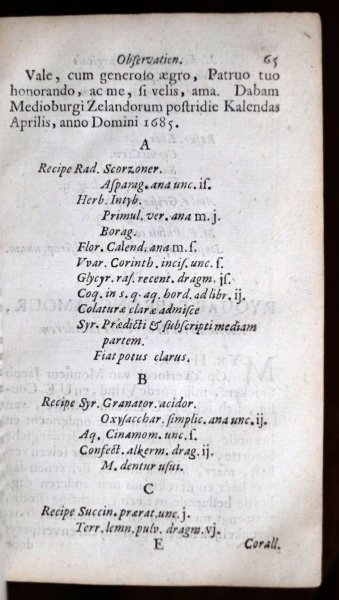 Observatien. 65
Vale, cum generoso ægro, Patruo tuo
honorando, ac me, si velis, ama. Dabam
Medioburgi Zelandorum postridie Kalendas
Aprilis, anno Domini 1685.
A
Recipe Rad. Scorzoner.
Asparag. ana unc. iſ.
Herb. Intyb.
Primul. ver. ana m. j.
Borag.
Flor. Calend. ana m. ſ.
Vvar. Corinth. incis. unc. ſ.
Glycyr. ras. recent. dragm. jſ.
Coq. in s. q. aq. hord. ad libr. ij.
Colaturæ claræ admisce
Syr. Prædicti & subscripti mediam
partem.
Fiat potus clarus.
B
Recipe Syr. Granator. acidor.
Oxysacchar. simplic. ana unc. ij.
Aq. Cinamom. unc. ſ.
Confect. alkerm. drag. ij.
M. dentur usui.
C
Recipe Succin. præcrat. unc. j.
Terr. lemn. pulv. dragm. vj.
E Corall.